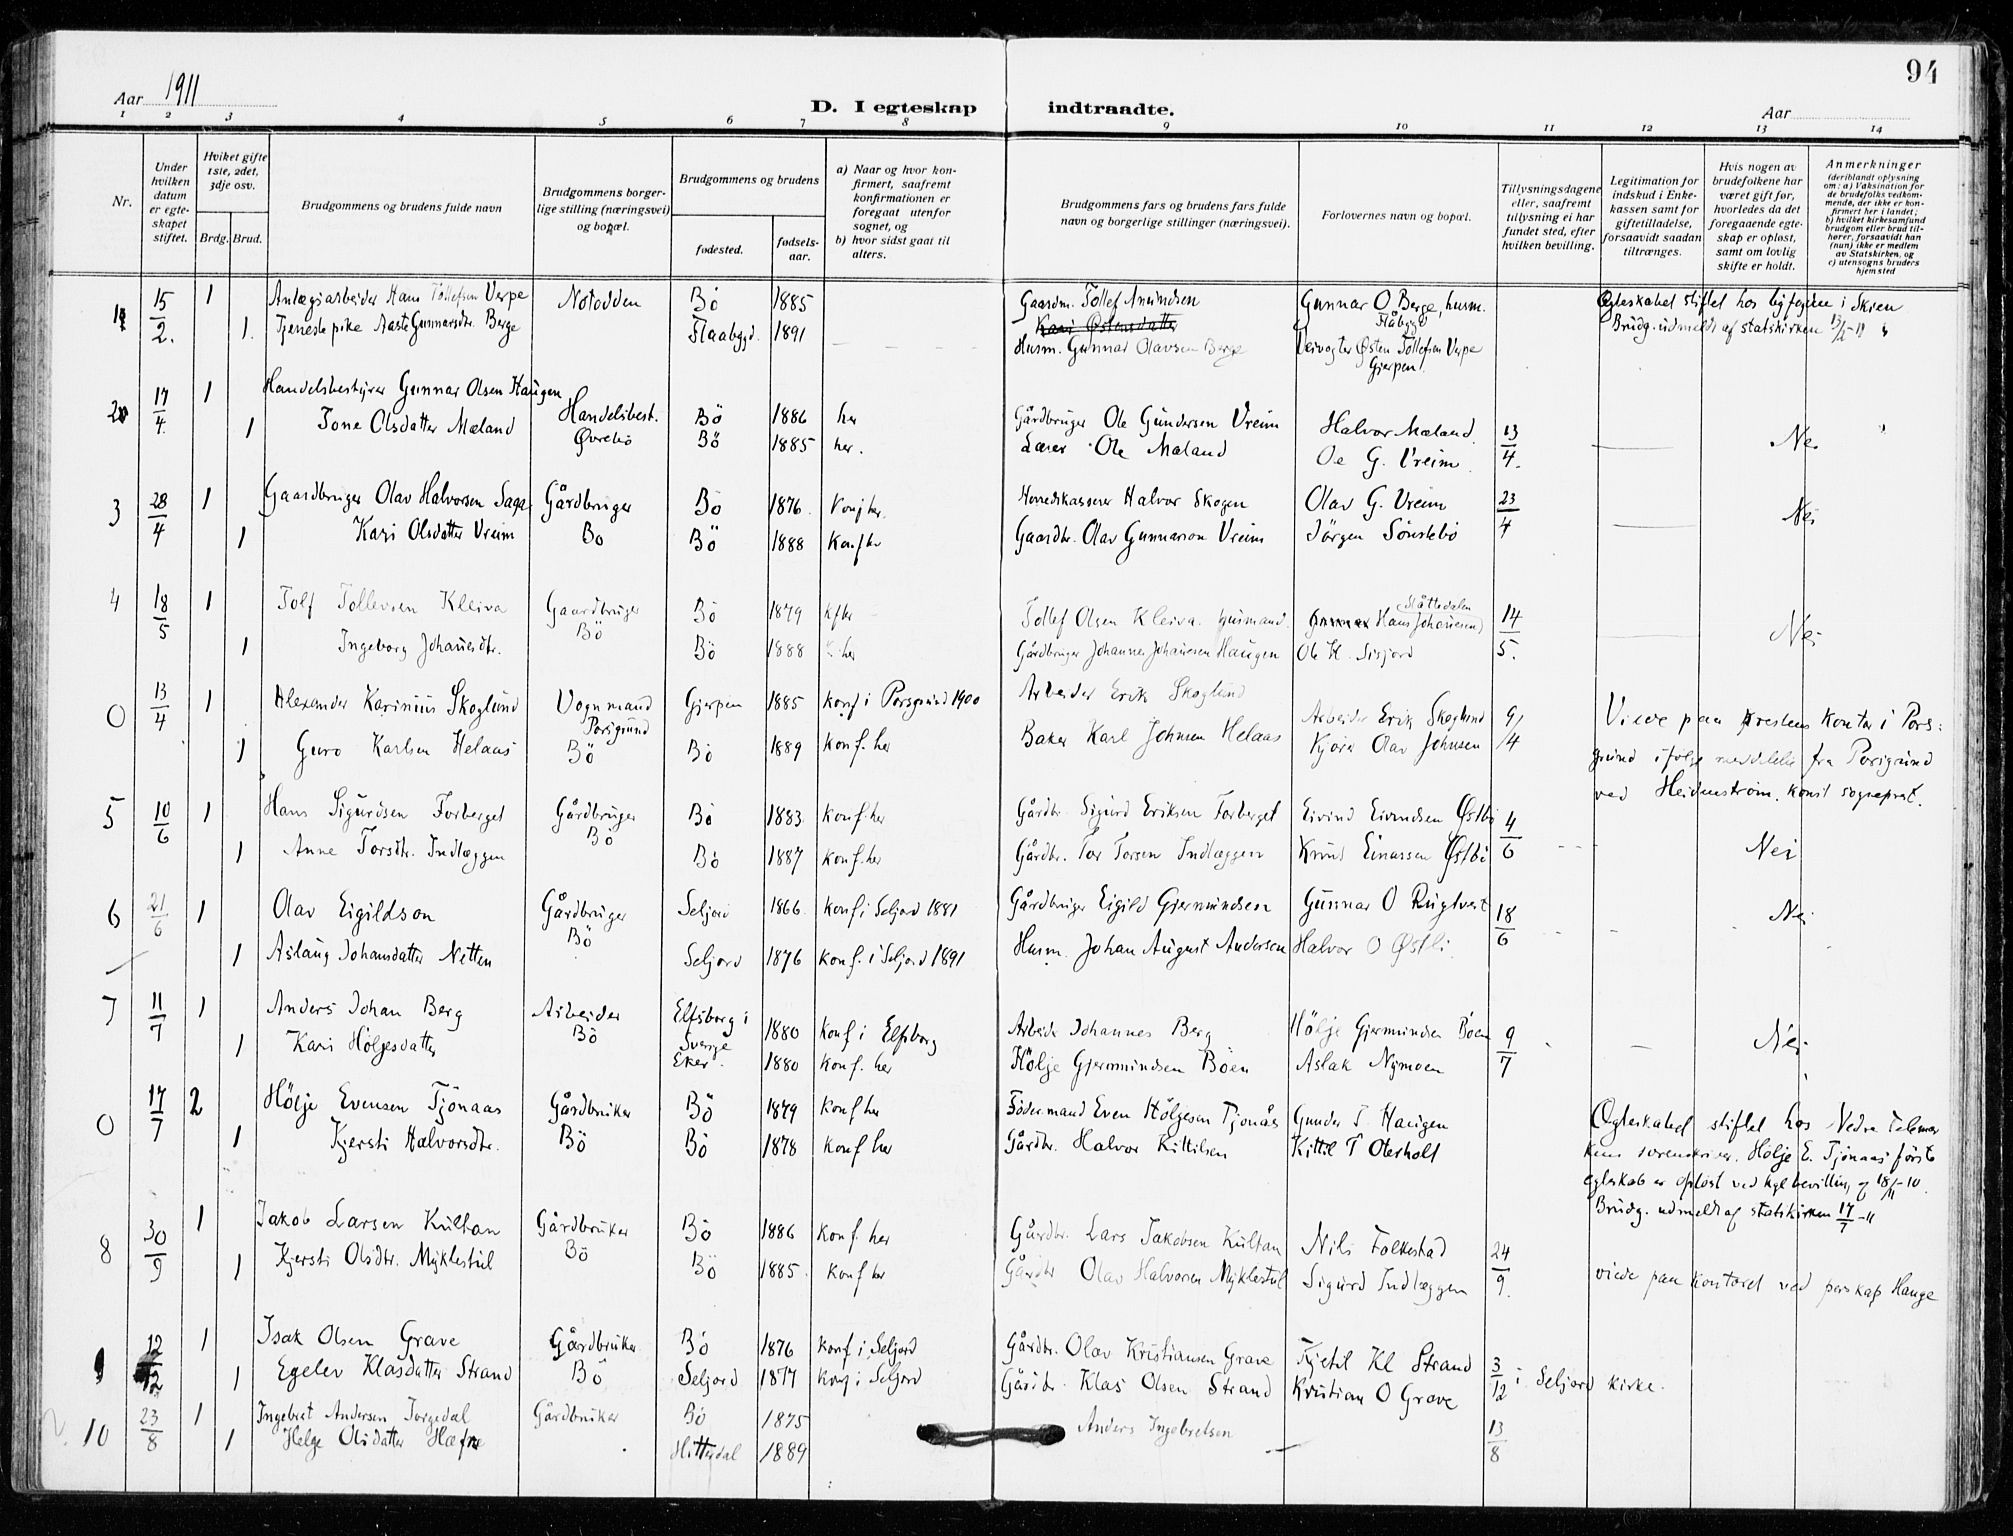 94
Aar 1911
D. I egteskap indtraadte.
Aar
1 2 3 4 5 6 7 8 9 10 11 12 13 14
Nr.
Under hvilken datum er egteskapet stiftet.
Hviket gifte 1ste, 2det, 3dje osv.
Brdg. Brud.
Brudgommens og brudens fulde navn
Brudgommens borgerlige stilling (næringsvei) og bopæl.
Brudgommens og brudens
fødested.
fødselsaar.
a) Naar og hvor konfirmert, saafremt konfirmationen er foregaat utenfor sognet, og
b) hvor sidst gaat til alters.
Brudgommens fars og brudens fars fulde navn og borgerlige stillinger (næringsvei).
Forlovernes navn og bopæl.
Tillysningsdagene eller, saafremt tillysning ei har fundet sted, efter hvilken bevilling.
Legitimation for indskud i Enkekassen samt for giftetilladelse, forsaavidt saadan tiltrænges.
Hvis nogen av brudefolkene har været gift før, hvorledes da det foregaaende egteskap er opløst, samt om lovlig skifte er holdt.
Anmerkninger (deriblandt oplysning om: a) Vaksination for de brudefolks vedkommende, der ikke er konfirmert her i landet; b) hvilket kirkesamfund brudgom eller brud tilhører, forsaavidt han (hun) ikke er medlem av Statskirken, og c) utensogns bruders hjemsted
1 15/2. 1 Anlægsarbeider Hans Tollefsen Verpe Notodden Bö 1885 Gaardm. Tollef Amundsen Gunnar O Berge, husm. Flåbygd Egteskabet stiftet hos byfogden i Skien
1. Tjenestepike Aaste Gunnarsdtr. Berge Flaabygd. 1891 Kari Østensdatter Brudg. udmeldt af statskirken 13/2-11
Husm. Gunnar Olavsen Berge Veivogter Østen Tollefsen Verpe Gjerpen.
2 17/4. 1 Handelsbestyrer Gunnar Olsen Haugen Handelsbest. Bö 1886 her Gårdbruger Ole Gundersen Vreim Halvor Mæland 13/4. Nei
1 Tone Olsdatter Mæland Øvrebö Bö 1885 her. Lærer Ole Mæland Ole G. Vreim.
3 28/4 1 Gaardbruger Olav Halvorsen Saga Gårdbruger Bö 1876 Konf her. Herredskasserer Halvor Skogen Olav G. Vreim 23/4 Nei
1 Kari Olsdatter Vreim Bö Bö 1888 Konf her Gaardbr. Olav Gunnarson Vreim Jörgen Sönstebö
4 18/5 1 Tolf Tollevsen Kleiva Gaardbruger Bö 1879 Tollef Olsen Kleiva. husmand. Hans Johannesen Slåttedalen 14/5. Nei
1 Ingeborg Johannesdtr. Bö Bö 1888 her Gårdbruger Johannes Johannesen Haugen Ole H. Sisjord
0 13/4 1 Alexander Karinius Skoglund Vognmand Porsgrund Gjerpen 1885 konf i Porsgrund 1900 Arbeider Erik Skoglund Arbeider Erik Skoglund 9/4 Viede paa prestens kontor i Pors-
1 Guro Karlsen Helaas Bö Bö 1889 konf. her Baker Karl Johnsen Helaas Kjörer Olav Johnsen grund ifølge meddelelse fra Porsgrund
ved Heidenstrøm. konst sogneprest.
5 10/6 1 Hans Sigurdsen Forberget Gårdbruger Bö 1883 konf. her Gårdbr. Sigurd Eriksen Forberget Eivind Eivendsen Østbö 4/6 Nei
1 Anne Torsdtr. Indlæggen Bö Bö 1887 konf. her Gårdbr. Tor Torsen Indlæggen Knud Einarsen Østbö
6 21/6 1 Olav Eigildson Gårdbruger Seljord 1866. konf i Seljord 1881 Gårdbruger Eigild Gjermundsen Gunnar O Rugtveit 18/6 Nei
1 Aslaug Johansdatter Netten Bö Seljord 1876 konf. i Seljord 1891 Husm. Johan August Andersen Halvor O Østli.
7 11/7 1 Anders Johan Berg Arbeider Elfsborg i Sverge 1880 konf i Elfsborg Arbeider Johannes Berg Hölje Gjermundsen Böen 9/7 Nei
1 Kari Höljesdatter Bö Eker. 1880 konf. her Hölje Gjermundsen Böen Aslak Nymoen
0 17/7 2 Hölje Evensen Tjönaas Gårdbruker Bö 1879 konf her Födermand Even Höljesen Tjönås Gunder T. Haugen Egteskabet stiftet hos Nedre Telemar
1 Kjersti Halvorsdtr. Bö Bö 1878 konf her Gårdbr. Halvor Kittilsen Kittil T Oterholt kens sorenskriver. Hölje E. Tjönaas første
egteskab er opløst ved kgl bevilling af 18/11-10.
Brudg. udmeldt af statskirken 17/7-11
8 30/9 1 Jakob Larsen Kultan Gårdbruker Bö 1886 konf. her Gårdbr. Lars Jakobsen Kultan Nils Folkestad 24/9.
1 Kjersti Olsdtr. Myklestul Bö Bö 1885. konf her Gårdbr Olav Halvorsen Myklestul Sigurd Indlæggen viede paa kontoret ved perskap Hauge
9 12/12 1 Isak Olsen Grave Gårdbruker Bö 1876 konf i Seljord Gårdbr. Olav Kristiansen Grave Kjetil Kl Strand 3/12 i Seljord kirke.
1 Egelev Klasdatter Strand Bö Seljord 1877 konf i Seljord Gårdbr. Klas Olsen Strand Kristian O Grave
10 23/8 1 Ingebret Andersen Torgedal Gårdbruker Bö 1875 Anders Ingebretsen 13/8
1 Helge Olsdatter Hæfre Hitterdal 1889